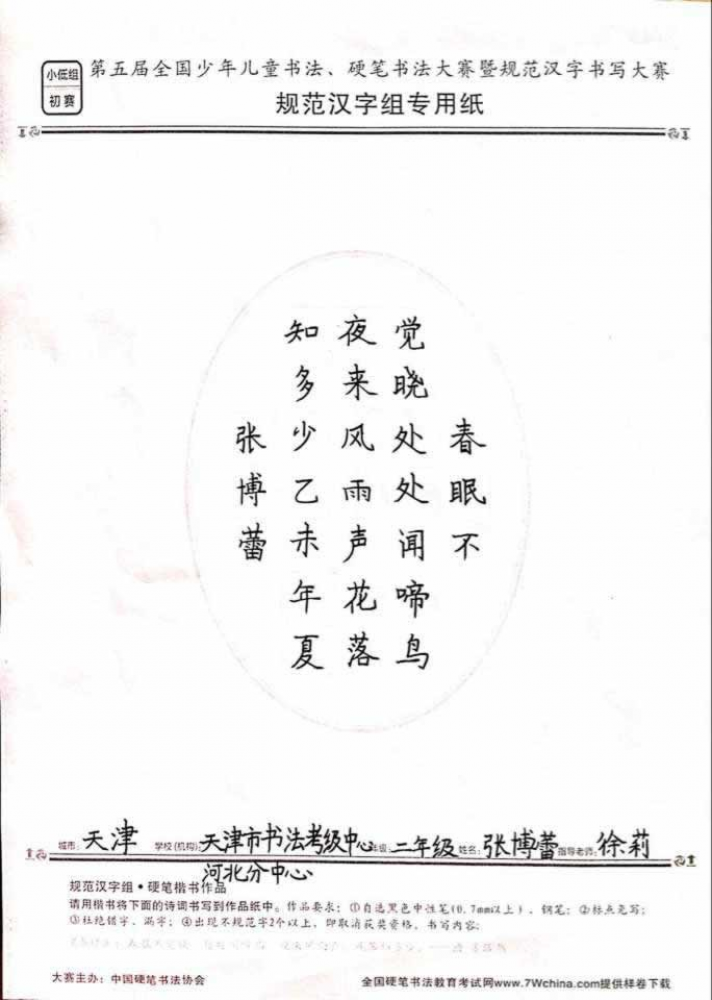 小低组
初赛
第五届全国少年儿童书法、硬笔书法大赛暨规范汉字书写大赛
规范汉字组专用纸
春眠不
觉晓处处闻啼鸟
夜来风雨声花落
知多少乙未年夏
张博蕾
城市：天津 学校(机构)：天津市书法考级中心 年级：二年级 姓名：张博蕾 指导老师：徐莉
河北分中心
规范汉字组·硬笔楷书作品
请用楷书将下面的诗词书写到作品纸中。作品要求：①自选黑色中性笔(0.7mm以上)、钢笔；②标点免写；
③杜绝错字、漏字；④出现不规范字2个以上，即取消获奖资格。书写内容：
大赛主办：中国硬笔书法协会
全国硬笔书法教育考试网www.7Wchina.com提供样卷下载